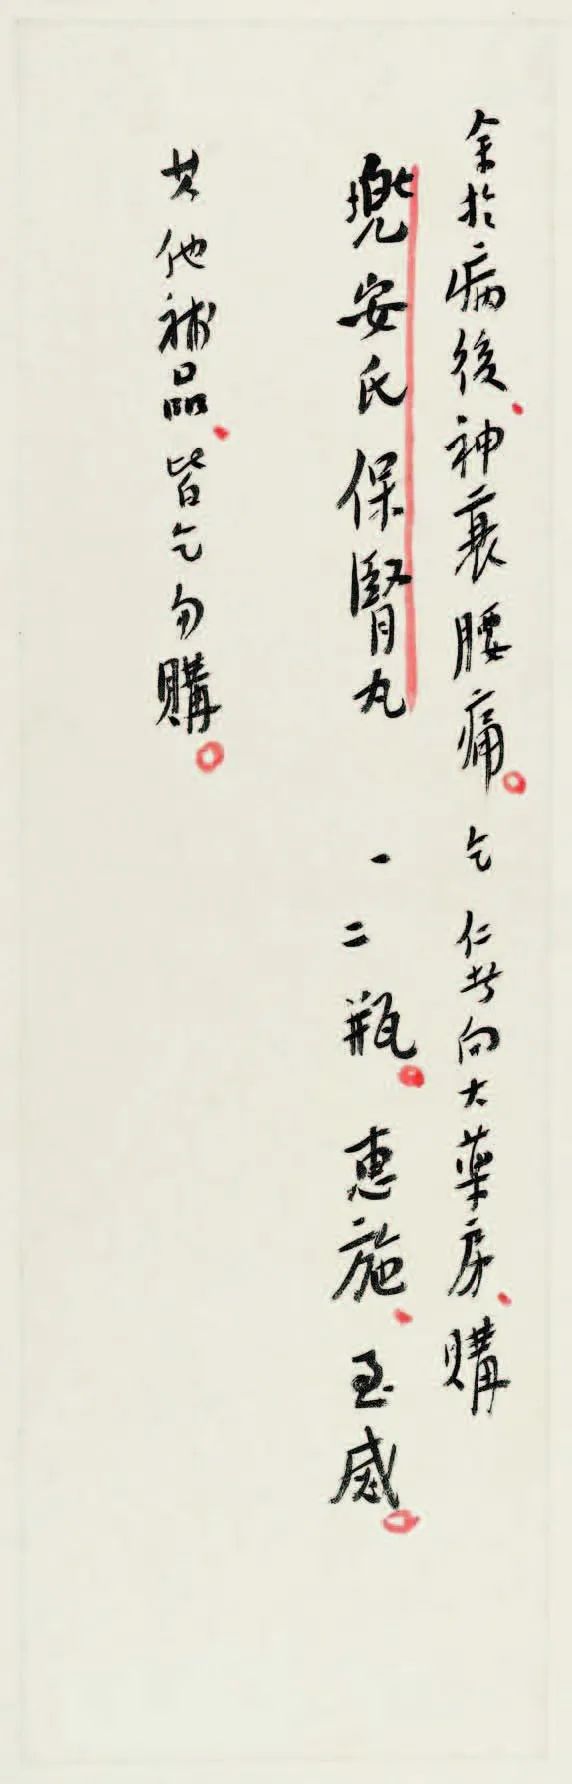 余於病後、神衰腰痛。乞 仁者向大藥房、購
兜安氏保腎丸 一二瓶。惠施、至感。
其他補品、皆乞勿購。